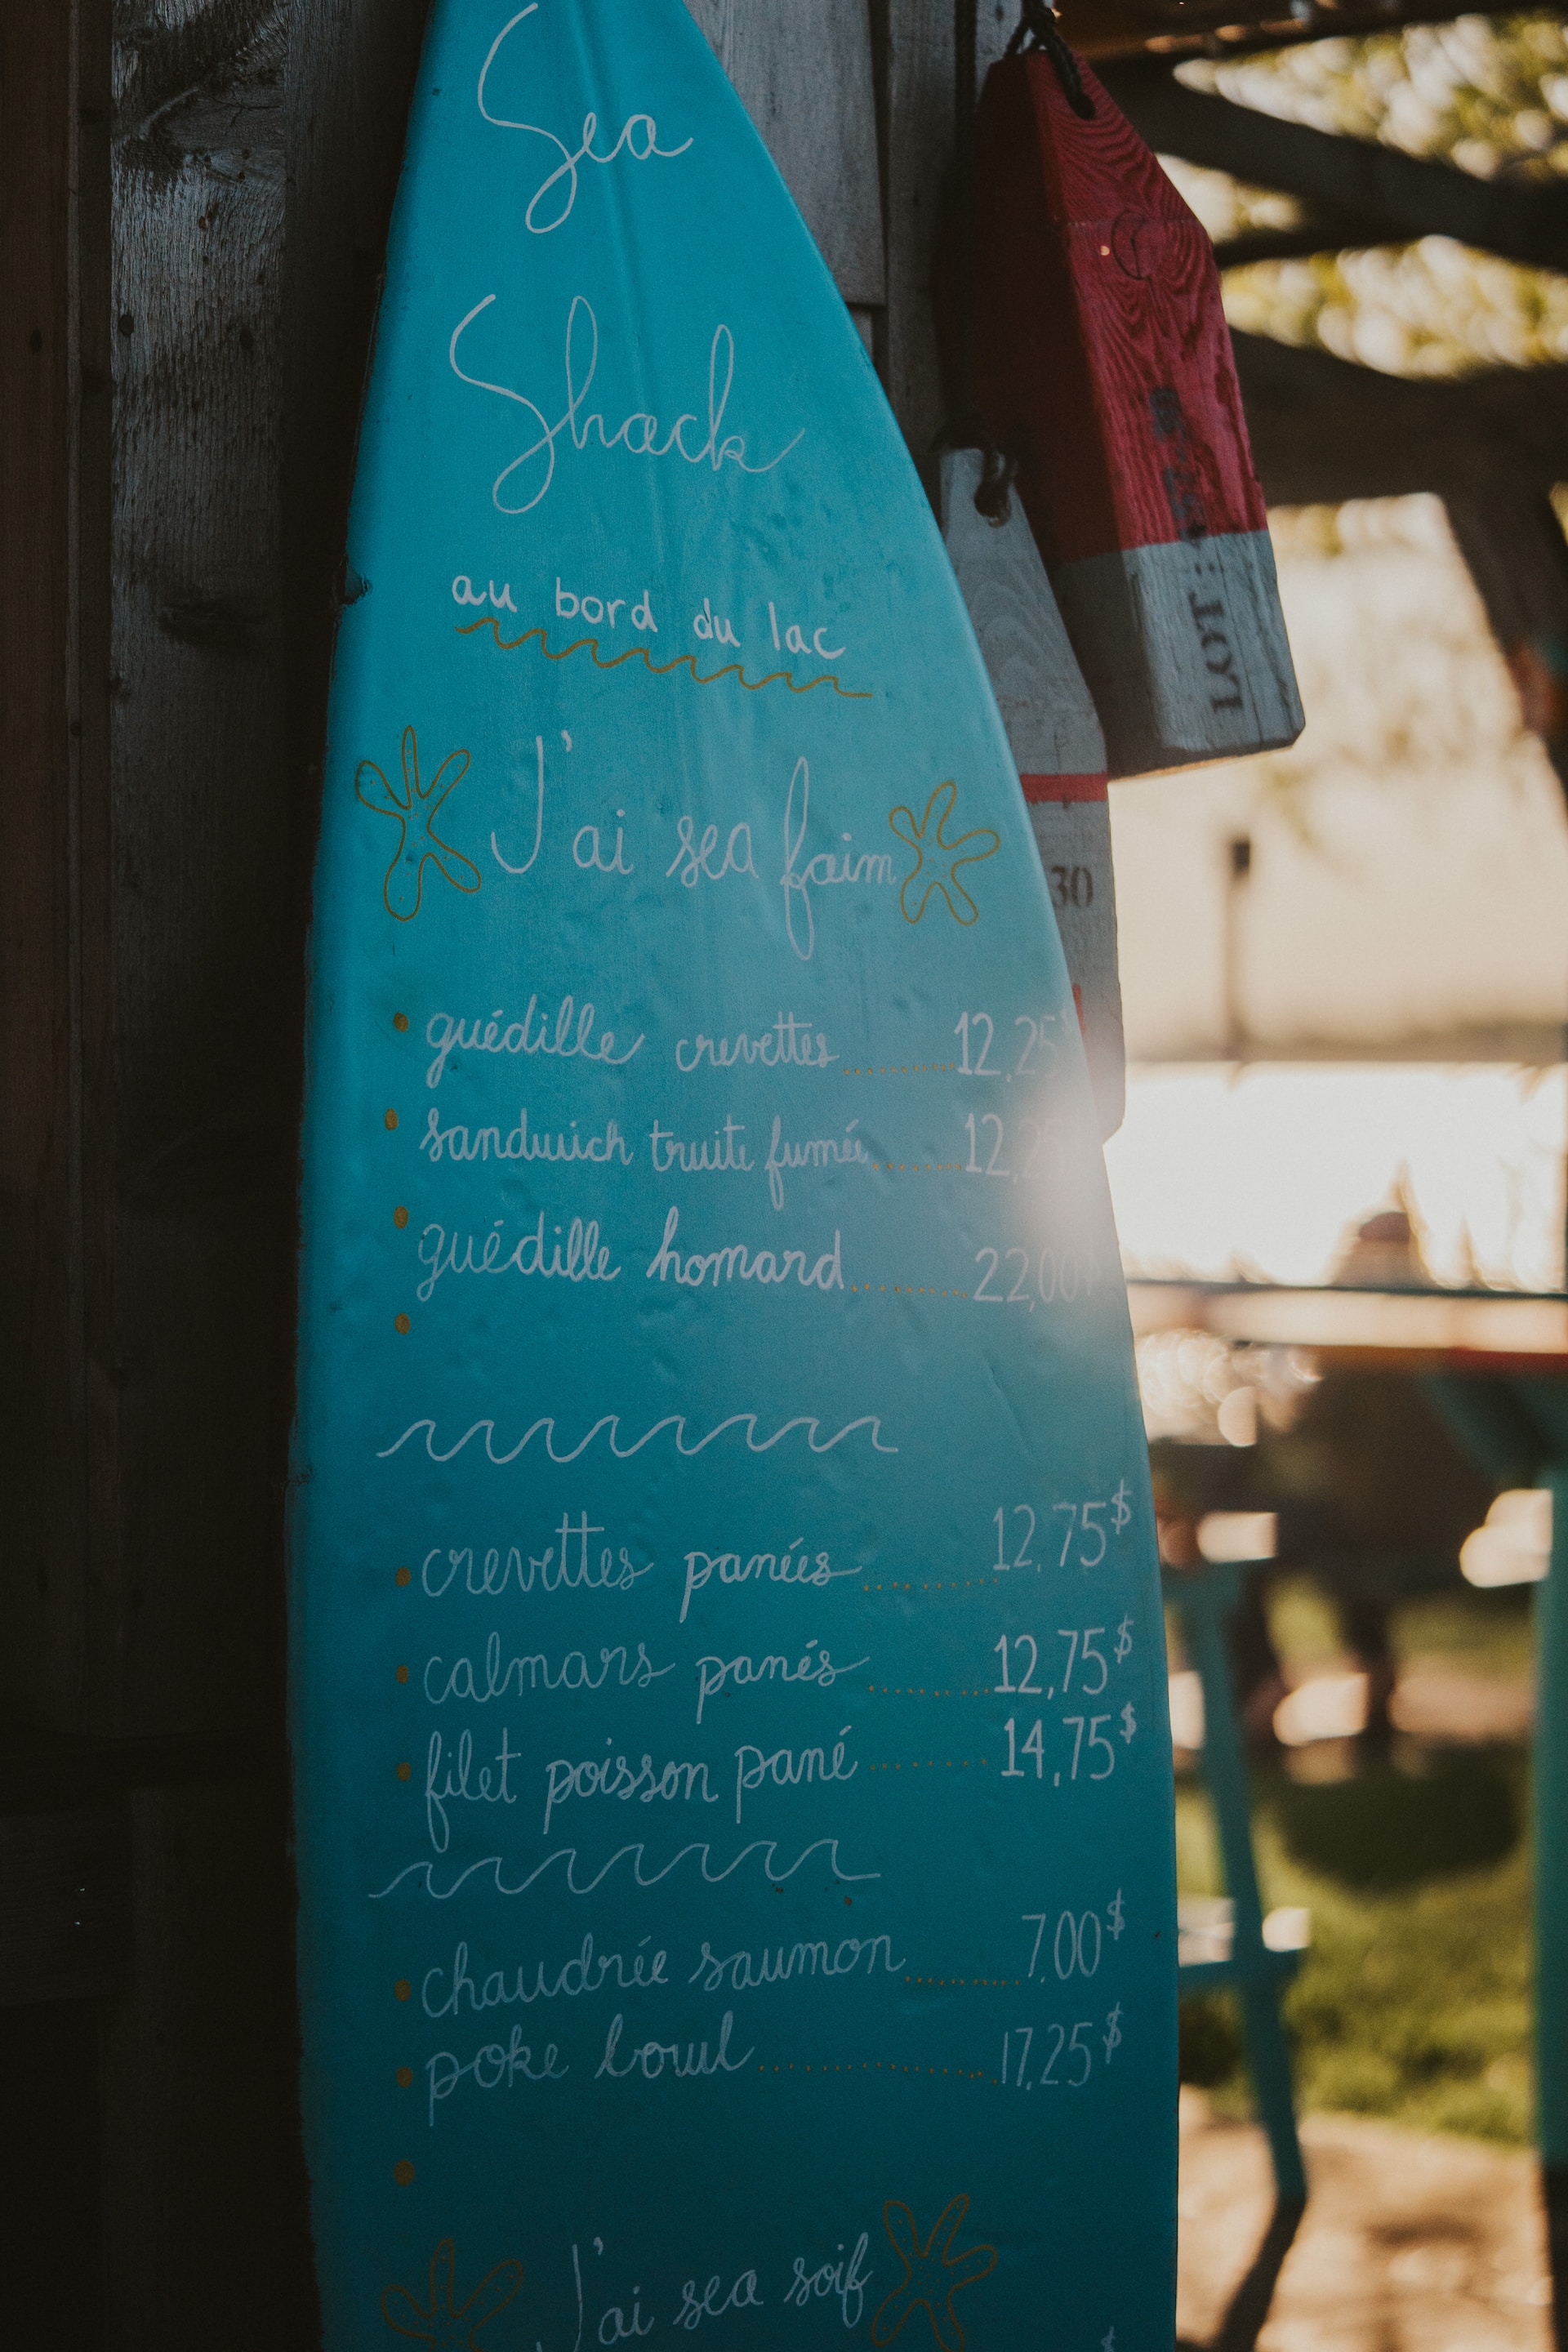 Sea
Shack
au bord du lac
J'ai sea faim
guédille crevettes 12,25
sandwich truite fumée 12,2
guédille homard 22,00
crevettes panées 12,75$
calmars panés 12,75$
filet poisson pané 14,75$
chaudrée saumon 7.00$
poke bowl 17,25$
J'ai sea soif
$
LOT:
30